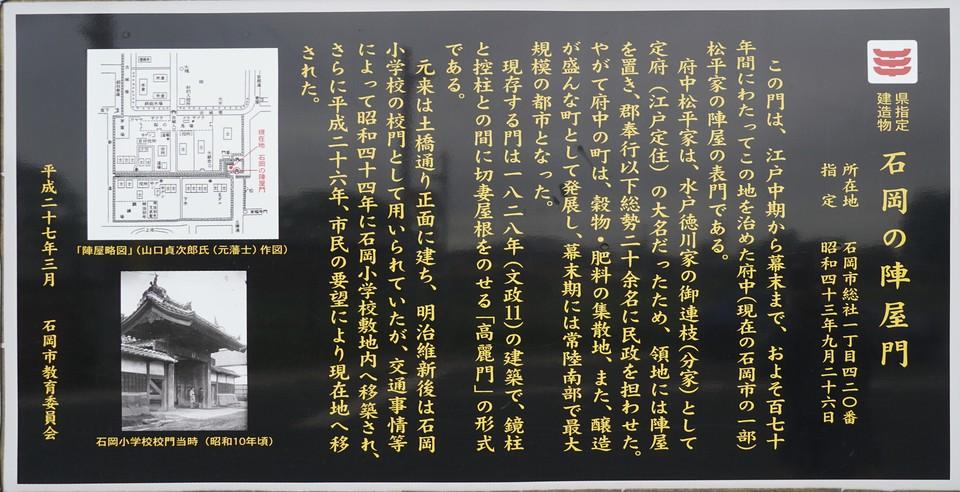 県指定
建造物
石岡の陣屋門
所在地 石岡市総社一丁目四二〇番
指定 昭和四十三年九月二十六日
この門は、江戸中期から幕末まで、およそ百七十
年間にわたってこの地を治めた府中(現在の石岡市の一部)
松平家の陣屋の表門である。
府中松平家は、水戸徳川家の御連枝(分家)として
定府(江戸定住)の大名だったため、領地には陣屋
を置き、郡奉行以下総勢二十余名に民政を担わせた。
やがて府中の町は、穀物・肥料の集散地、また、醸造
が盛んな町として発展し、幕末期には常陸南部で最大
規模の都市となった。
現存する門は一八二八年(文政11)の建築で、鏡柱
と控柱との間に切妻屋根をのせる「高麗門」の形式
である。
元来は土橋通り正面に建ち、明治維新後は石岡
小学校の校門として用いられていたが、交通事情等
によって昭和四十四年に石岡小学校敷地内へ移築され、
さらに平成二十六年、市民の要望により現在地へ移
された。
現在地 石岡の陣屋門
「陣屋略図」(山口貞次郎氏(元藩士)作図)
石岡小学校校門当時(昭和10年頃)
平成二十七年三月 石岡市教育委員会